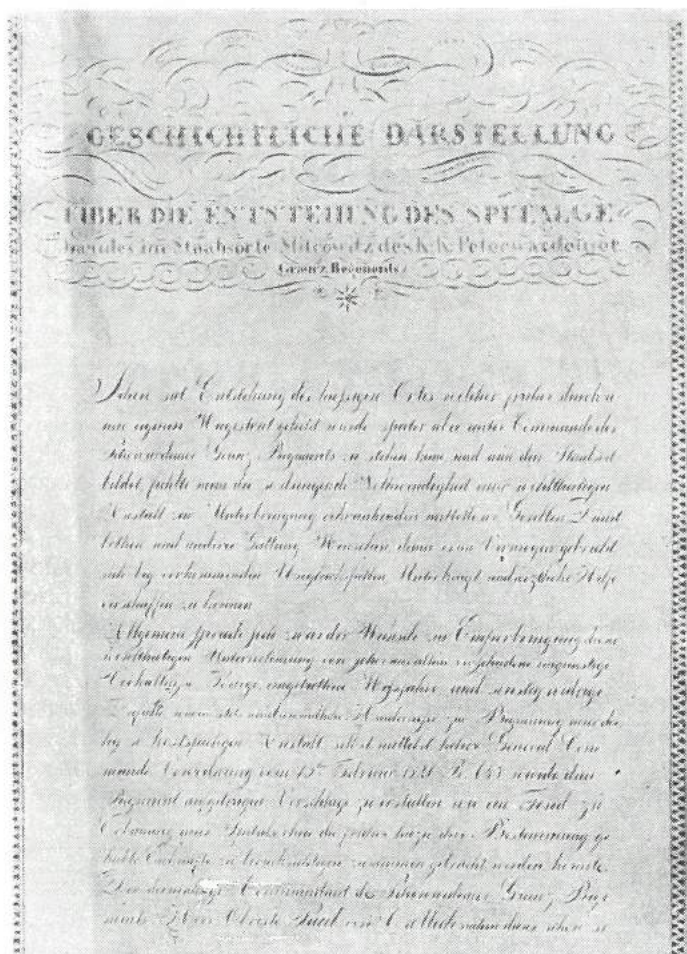 GESCHICHTLICHE DARSTELLUNG
ÜBER DIE ENTSTEHUNG DES SPITALGE-
baudes im Staabsorte Mitrowitz des K.K. Peterwardeiner
Grenz Regements
Schon seit Entstehung des hiesigen Ortes welcher früher durch
eigenen Magistrat geleitet wurde später aber unter Commando des
Peterwardeiner Grenz Regiments zu stehen kam und nun den Staabsort
bildet fühlte man die so dringende Nothwendigkeit einer wohlthätigen
Anstalt zur Unterbringung erkrankender mittelloser Gesellen Dienst
bothen und anderer Gattung Menschen denen es an Vermögen gebricht
sich bey vorkommenden Unglücksfällen Unterkunft und ärztliche Hilfe
verschaffen zu können
Allgemein sprach sich zwar der Wunsch zur Emporbringung dieser
wohlthätigen Unternehmung von jeher aus allein verschiedene ungünstige
Verhältnisse Kriege, eingetrettene Mißjahre und sonstige widrige
Zufälle waren stets unüberwindliche Hindernisse zur Begründung einer
so kostspieligen Anstalt, selbst mittelst hoher General Com-
mando Verordnung vom 15ten Februar 1821 wurde dem
Regiment aufgetragen Vorschläge zu erstatten wie ein Fond zu
Erbauung eines Spitals ohne die
zu berücksichtigen zusammen gebracht werden könnte.
Der dermalige Commandant des Peterwardeiner Grenz Regi-
ments Herr Obrist